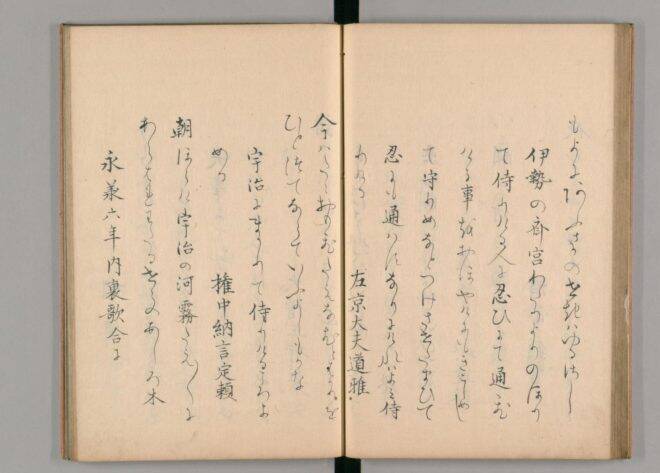 もよにあふさかのせきはゆるさし
伊勢の斎宮わたりよりのほり
て侍りける人に忍ひて通ひ
ける事をおほやけもきこしめし
て守りめなとつけさせたまひて
忍にも通はすなりにけれはよみ侍
りける　左京大夫道雅
今はたゝおもひたえなむとはかりを
ひとつてならていふよしもかな
宇治にまかりて侍りけるときよ
める　権中納言定頼
朝ほらけ宇治の河霧たえ〳〵に
あらはれわたるせゝのあしろ木
永承六年内裏歌合に